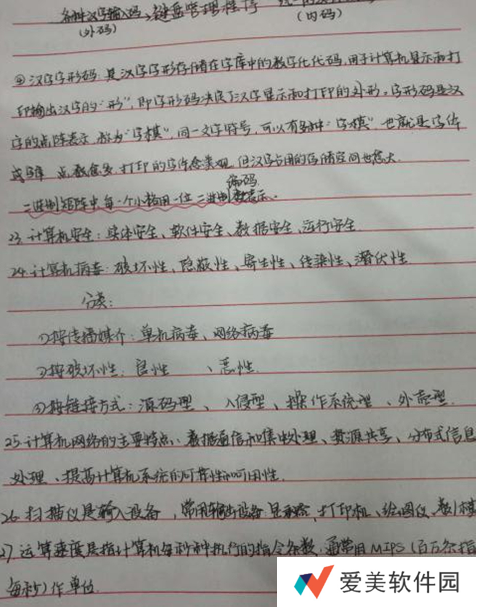 各种汉字输入码→键盘管理程序
(外码) (内码)
④汉字字形码:是汉字字形存储在字库中的数字化代码,用于计算机显示和打
印输出汉字的“形”,即字形码决定了汉字显示和打印的外形。字形码是汉
字的点阵表示,称为“字模”,同一文字符号,可以有多种“字模”,也就是字体
或字库 点数愈多,打印的字体愈美观,但汉字占用的存储空间也愈大
编码
二进制矩阵中每一个小格用一位二进制数表示。
23.计算机安全:实体安全、软件安全、数据安全、运行安全
24.计算机病毒:破坏性、隐蔽性、寄生性、传染性、潜伏性
分类:
①按传播媒介:单机病毒、网络病毒
②按破坏性:良性 、恶性
③按链接方式:源码型 、入侵型 、操作系统型 、外壳型
25.计算机网络的主要特点:数据通信和集中处理、资源共享、分布式信息
处理、提高计算机系统的可靠性和可用性
26.扫描仪是输入设备,常用输出设备:显示器,打印机、绘图仪、
27运算速度是指计算机每秒种执行的指令条数,通常用MIPS(百万条指
每秒)作单位
爱美软件园